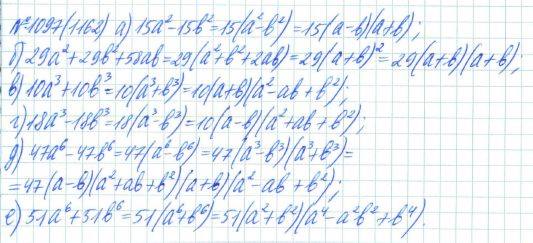 №1097(1162) а) 15a²-15b²=15(a²-b²)=15(a-b)(a+b);
б) 29a²+29b²+58ab=29(a²+b²+2ab)=29(a+b)²=29(a+b)(a+b);
в) 10a³+10b³=10(a³+b³)=10(a+b)(a²-ab+b²);
г) 18a³-18b³=18(a³-b³)=10(a-b)(a²+ab+b²);
д) 47a⁶-47b⁶=47(a⁶-b⁶)=47(a³-b³)(a³+b³)=
=47(a-b)(a²+ab+b²)(a+b)(a²-ab+b²);
е) 51a⁶+51b⁶=51(a⁶+b⁶)=51(a²+b²)(a⁴-a²b²+b⁴).